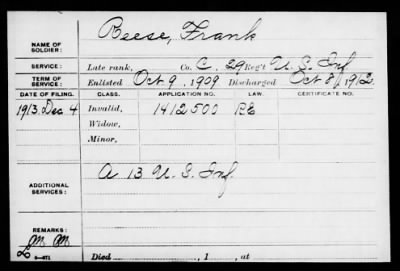 Reese, Frank
NAME OF SOLDIER:
SERVICE: Late rank, Co. C, 29 Reg't U.S. Inf
TERM OF SERVICE: Enlisted Oct 9, 1909 Discharged Oct 8, 1912
DATE OF FILING. CLASS. APPLICATION NO. LAW. CERTIFICATE NO.
1913. Dec 4 Invalid, 1412500
Widow,
Minor,
ADDITIONAL SERVICES: A 13 U.S. Inf
REMARKS:
3—071
Died , 1 , at